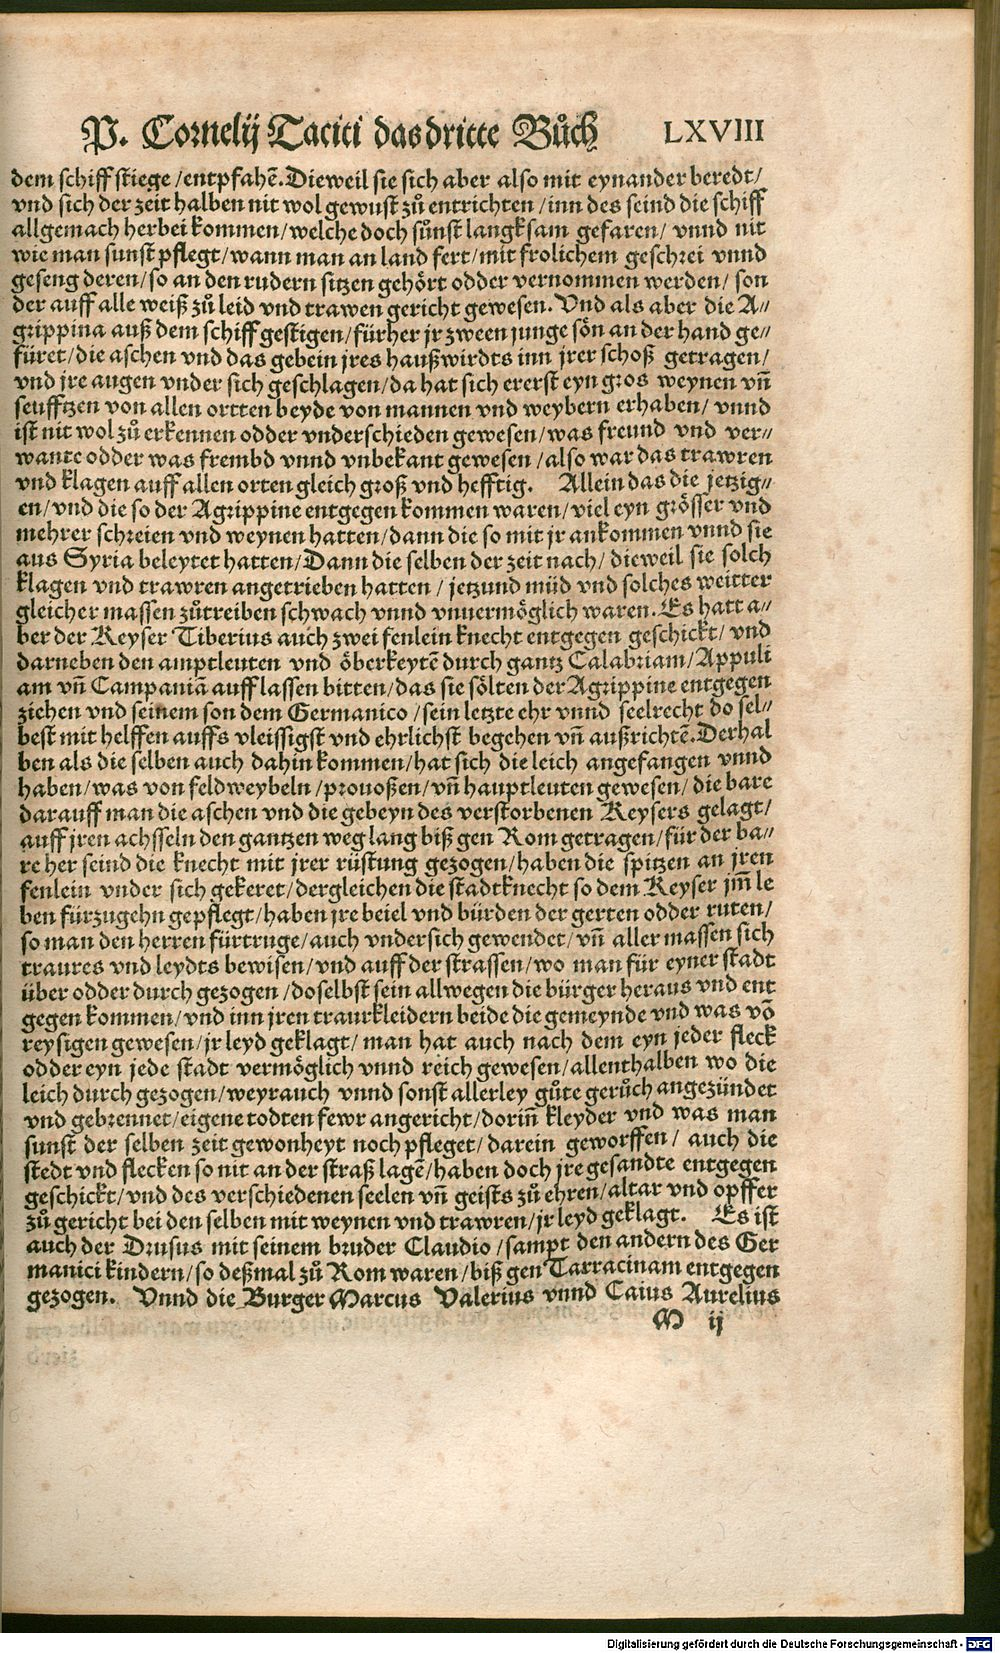 P. Cornelij Taciti das dritte Bůch LXVIII
dem schiff stiege/entpfahẽ. Dieweil sie sich aber also mit eynander beredt/
vnd sich der zeit halben nit wol gewust zů entrichten/inn des seind die schiff
allgemach herbei kommen/welche doch sůnst langksam gefaren/ vnnd nit
wie man sunst pflegt/wann man an land fert/mit frolichem geschrei vnnd
geseng deren/so an den rudern sitzen gehört odder vernommen werden/ son
der auff alle weiß zů leid vnd trawen gericht gewesen. Vnd als aber die A⸗
grippina auß dem schiff gestigen/fürher jr zween junge sön an der hand ge⸗
füret/die aschen vnd das gebein jres haußwirdts inn jrer schoß getragen/
vnd jre augen vnder sich geschlagen/da hat sich ererst eyn gros weynen vñ
seufftzen von allen ortten beyde von mannen vnd weybern erhaben/ vnnd
ist nit wol zů erkennen odder vnderschieden gewesen/was freund vnd ver⸗
wante odder was frembd vnnd vnbekant gewesen/also war das trawren
vnd klagen auff allen orten gleich groß vnd hefftig. Allein das die jetzig⸗
en/vnd die so der Agrippine entgegen kommen waren/viel eyn grösser vnd
mehrer schreien vnd weynen hatten/dann die so mit jr ankommen vnnd sie
aus Syria beleytet hatten/Dann die selben der zeit nach/ dieweil sie solch
klagen vnd trawren angetrieben hatten/ jetzund müd vnd solches weitter
gleicher massen zůtreiben schwach vnnd vnuermöglich waren. Es hatt a⸗
ber der Keyser Tiberius auch zwei fenlein knecht entgegen geschickt/ vnd
darneben den amptleuten vnd öberkeytẽ durch gantz Calabriam/Appuli
am vñ Campaniã auff lassen bitten/das sie sölten der Agrippine entgegen
ziehen vnd seinem son dem Germanico/sein letzte ehr vnnd seelrecht do sel⸗
best mit helffen auffs vleissigst vnd ehrlichst begehen vñ außrichtẽ. Derhal
ben als die selben auch dahin kommen/hat sich die leich angefangen vnnd
haben/was von feldweybeln/prouoßen/vñ hauptleuten gewesen/ die bare
darauff man die aschen vnd die gebeyn des verstorbenen Keysers gelagt/
auff jren achsseln den gantzen weg lang biß gen Rom getragen/für der ba⸗
re her seind die knecht mit jrer rüstung gezogen/haben die spitzen an jren
fenlein vnder sich gekeret/dergleichen die stadtknecht so dem Keyser jm̃ le
ben fürzugehn gepflegt/haben jre beiel vnd bürden der gerten odder ruten/
so man den herren fürtruge/auch vndersich gewendet/vñ aller massen sich
traures vnd leydts bewisen/vnd auff der strassen/wo man für eyner stadt
über odder durch gezogen/doselbst sein allwegen die bürger heraus vnd ent
gegen kommen/vnd inn jren traurkleidern beide die gemeynde vnd was võ
reysigen gewesen/jr leyd geklagt/ man hat auch nach dem eyn jeder fleck
odder eyn jede stadt vermöglich vnnd reich gewesen/allenthalben wo die
leich durch gezogen/weyrauch vnnd sonst allerley gůte gerůch angezündet
vnd gebrennet/eigene todten fewr angericht/dorin̄ kleyder vnd was man
sunst der selben zeit gewonheyt noch pfleget/darein geworffen/ auch die
stedt vnd flecken so nit an der straß lagẽ/haben doch jre gesandte entgegen
geschickt/vnd des verschiedenen seelen vñ geists zů ehren/altar vnd opffer
zů gericht bei den selben mit weynen vnd trawren/jr leyd geklagt. Es ist
auch der Drusus mit seinem bruder Claudio/sampt den andern des Ger
manici kindern/so deßmal zů Rom waren/biß gen Tarracinam entgegen
gezogen. Vnnd die Burger Marcus Valerius vnnd Caius Aurelius
M ij
Digitalisierung gefördert durch die Deutsche Forschungsgemeinschaft - DFG